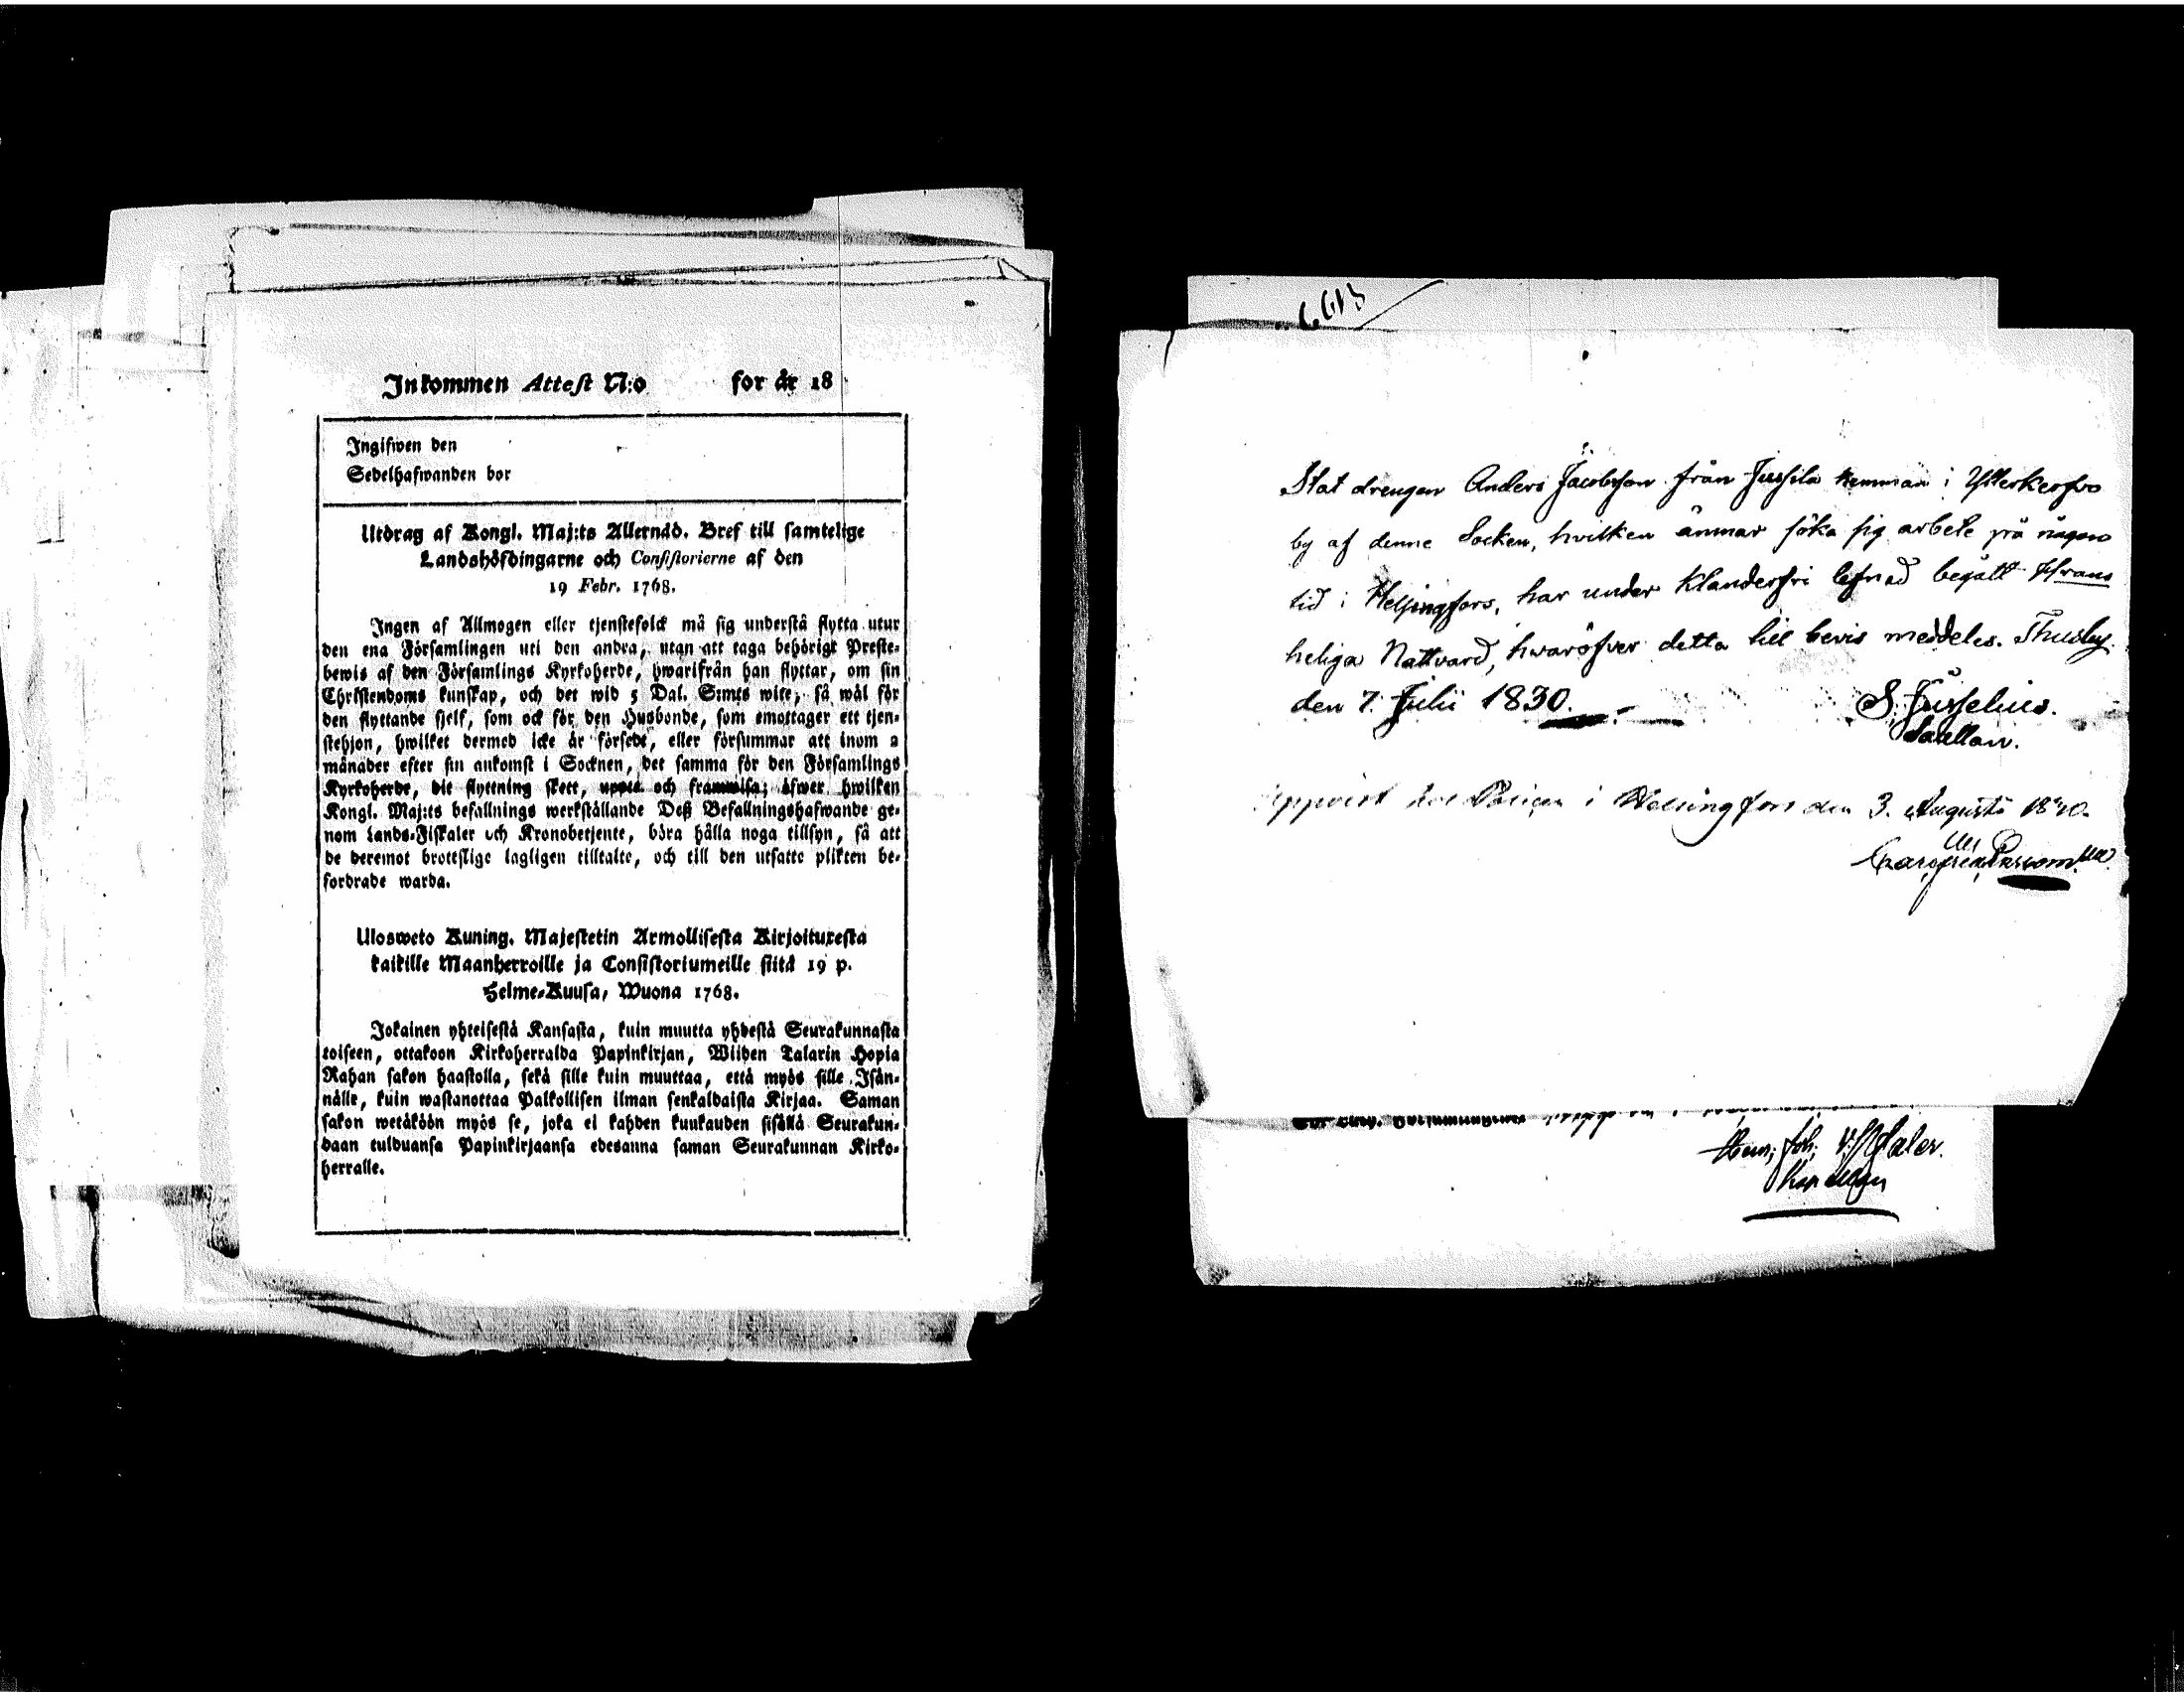 Inkommen Attest N:o för år 18
Ingifwen den
Sedelhafwanden bor
Utdrag af Kongl. Maj:ts Allernåd. Bref till samtelige
Landshöfdingarne och Consistorierne af den
19 Febr. 1768.
Ingen af Allmogen eller tjenstefolck må sig understå flytta utur
den ena Församlingen uti den andra, utan att taga behörigt Preste-
bewis af den Församlings Kyrkoherde, hwarifrån han flyttar, om sin
Christendoms kunskap, och det wid 5 Dal. S:mts wite, så wäl för
den flyttande sjelf, som ock för den Husbonde, som emottager ett tjen-
stehjon, hwilket dermed icke är försedt, eller försummar att inom 2
månader efter sin ankomst i Socknen, det samma för den Församlings
Kyrkoherde, dit flyttning skett, uppte och framwisa; öfwer hwilken
Kongl. Maj:ts befallnings werkställande Deß Befallningshafwande ge-
nom Lands-Fiskaler och Kronobetjente, böra hålla noga tillsyn, så att
de deremot brottslige lagligen tilltalte, och till den utsatte plikten be-
fordrade warda.
Ulosweto Kuning. Majestetin Armollisesta Kirjoituxesta
kaikille Maanherroille ja Consistoriumeille siitä 19 p.
Helme-Kuusa, Wuona 1768.
Jokainen yhteisestä Kansasta, kuin muutta yhdestä Seurakunnasta
toiseen, ottakoon Kirkoherralda Papinkirjan, Wiiden Talarin Hopia
Rahan sakon haastolla, sekä sille kuin muuttaa, että myös sille Isän-
nälle, kuin wastanottaa Palkollisen ilman senkaldaista Kirjaa. Saman
sakon wetäköön myös se, joka ei kahden kuukauden sisällä Seurakun-
daan tulduansa Papinkirjaansa edesanna saman Seurakunnan Kirko-
herralle.
Stat drengen Anders Jacobsson från Jussila hemman i Ytterkerfvo
by af denne Socken, hvilken ämnar söka sig arbete på någon
tid i Helsingfors, har under klanderfri lefnad begått Hrans
heliga Nattvard, hwaröfver detta till bevis meddeles. Thusby
den 7. Julii 1830. S. Jusselius.
Sacellan.
Uppvist hos Policen i Helsingfors den 3. Augusti 1830.